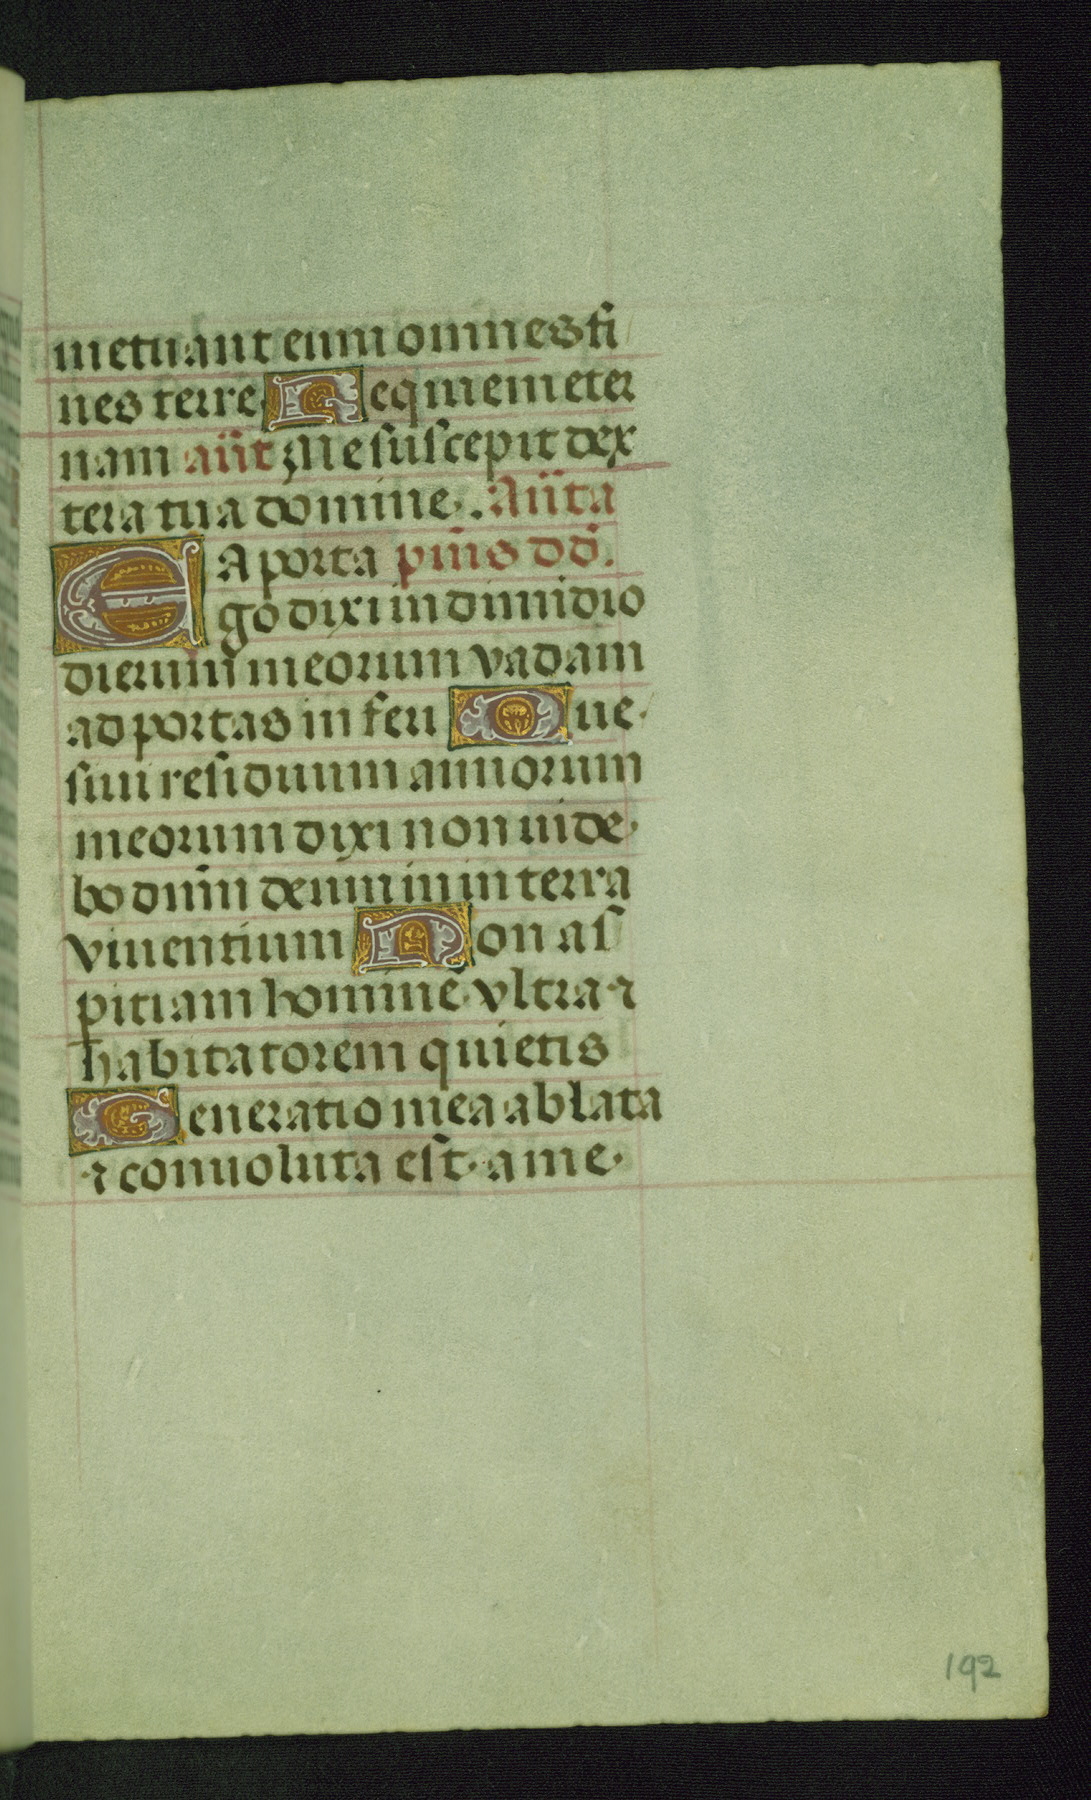 metuant eum omnes fi
nes terre Req̃uiem eter
nam an̄t Me suscepit dex
tera tua domine. An̄ta
A porta p̄ius dd̄.
Ego dixi in dimidio
dierum meorum vadam
ad portas inferi Que
siui residuum annorum
meorum dixi non uide
bo dnm̄ deum in in terra
viuentium Non as
pitiam hominē vltra ⁊
habitatorem quietis
Generatio mea ablata
⁊ conuoluta est a me
192